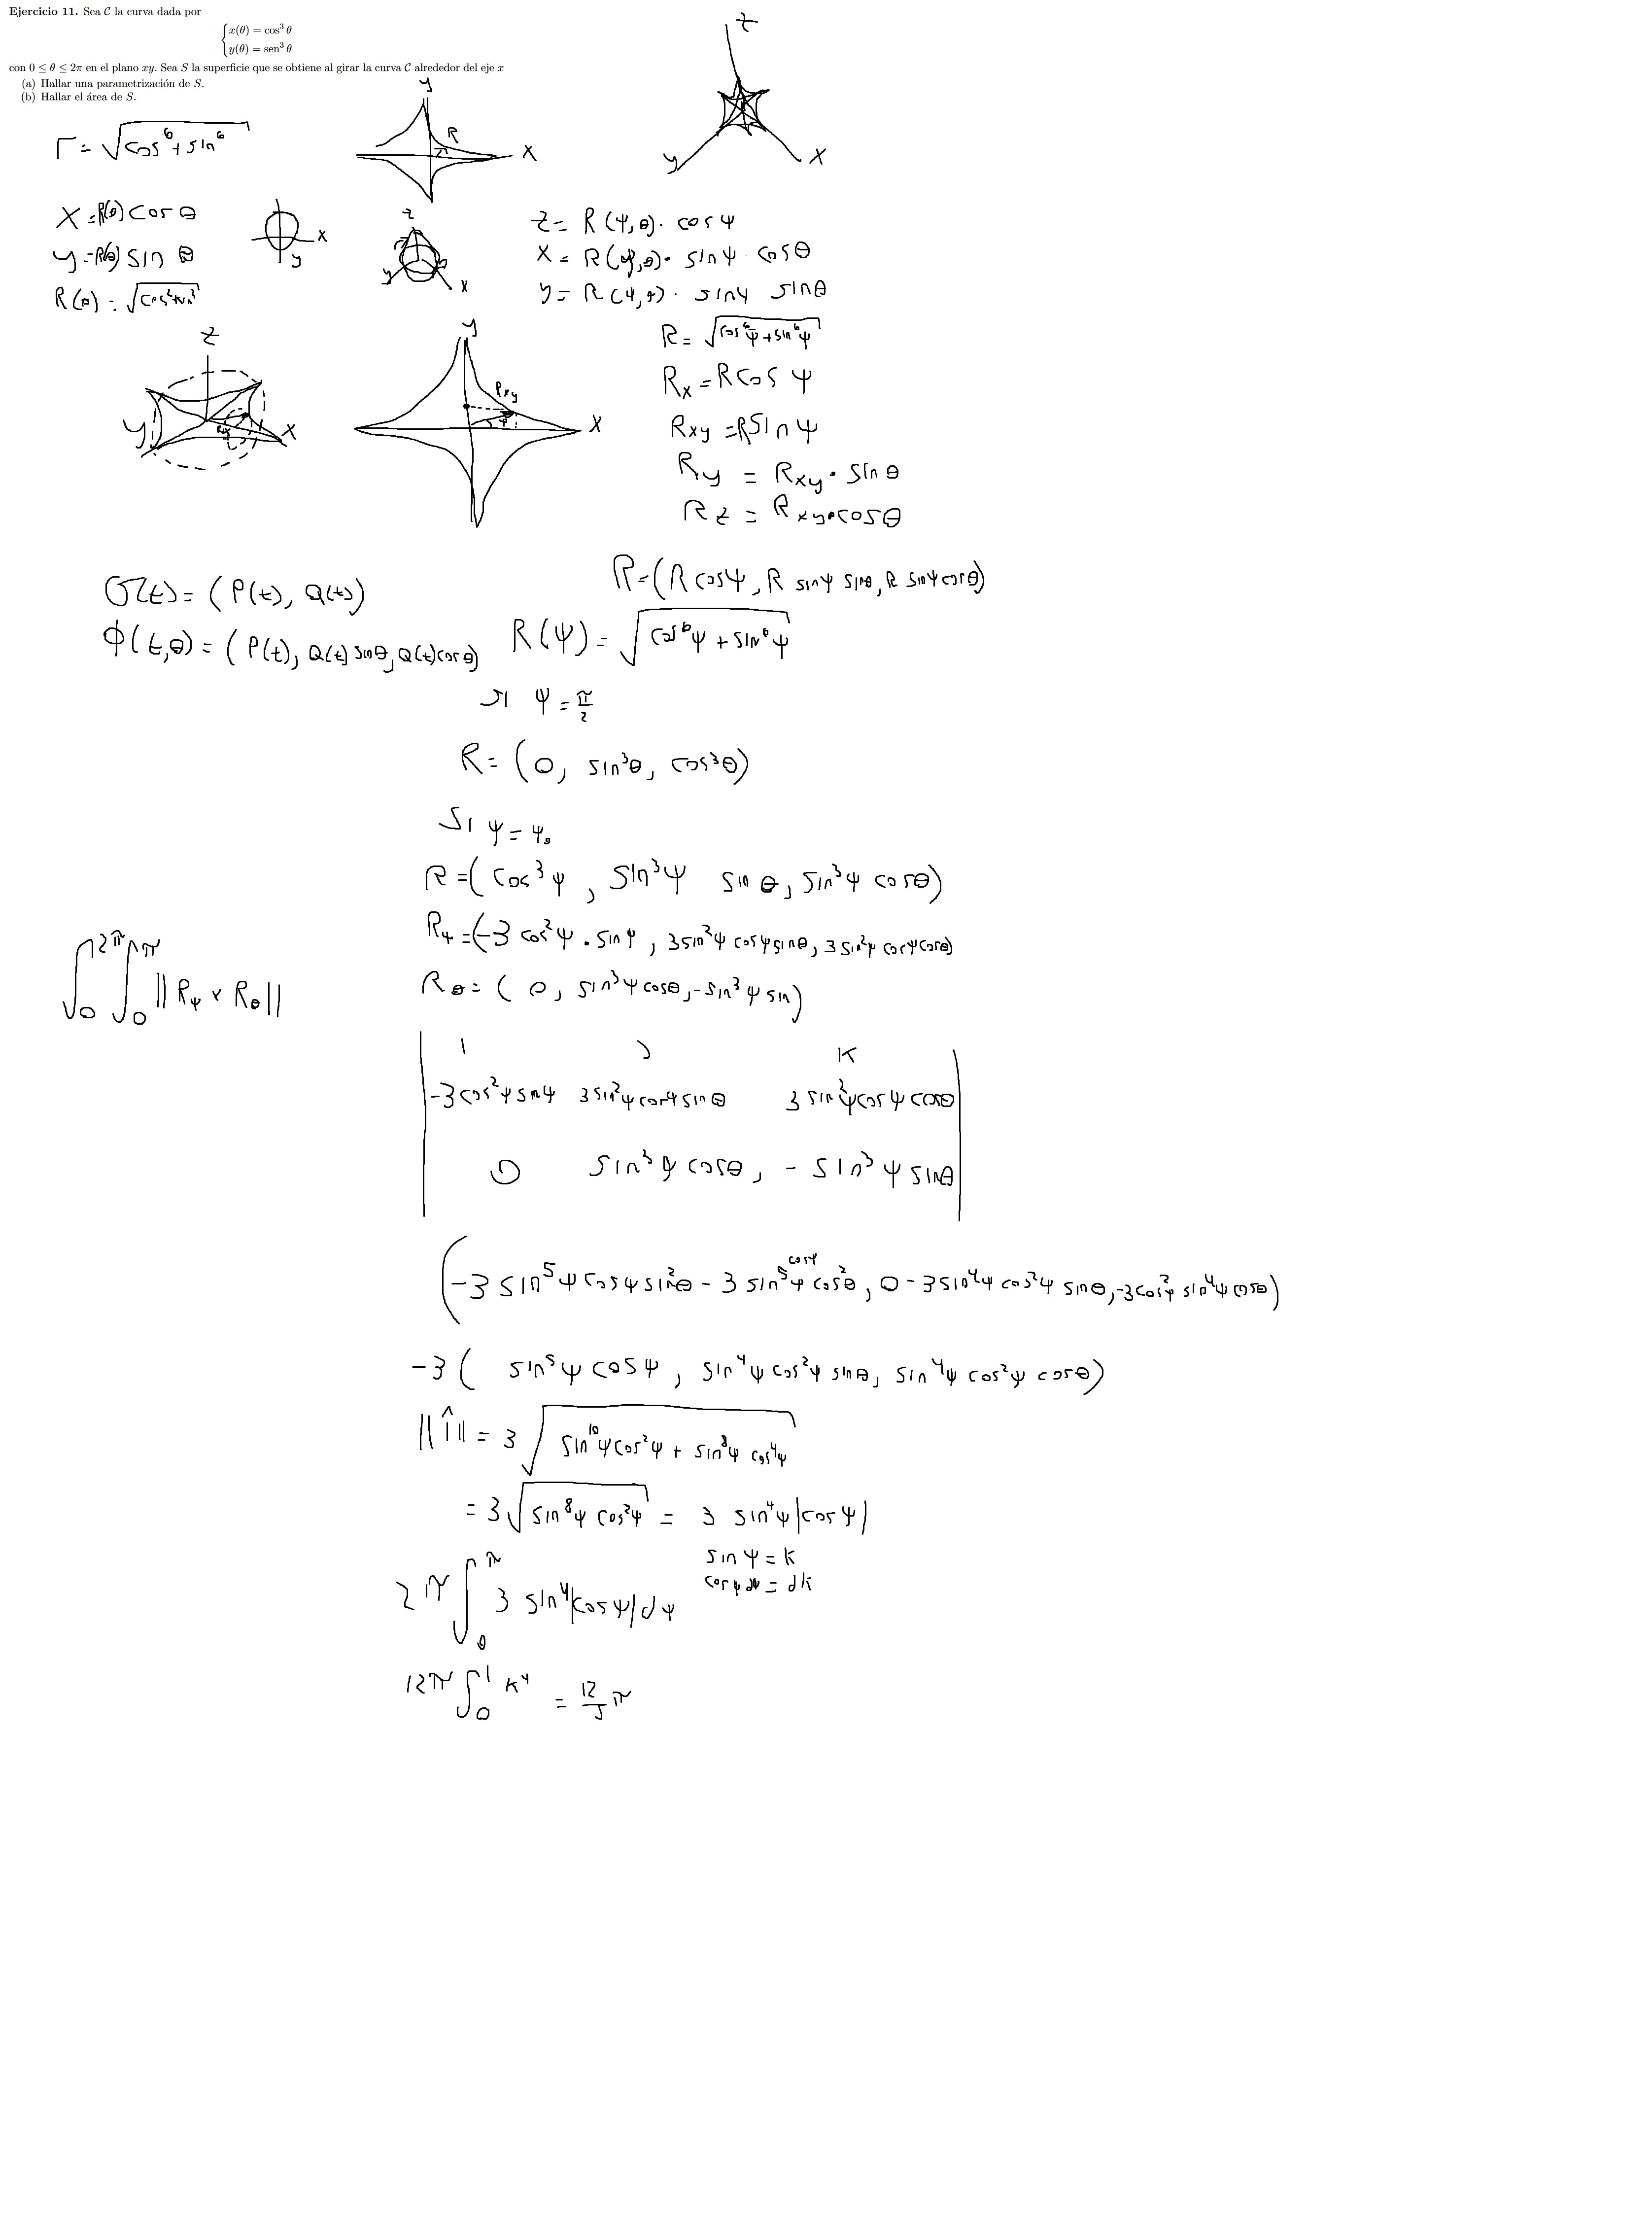 Ejercicio 11. Sea C la curva dada por
{x(θ) = cos³ θ
y(θ) = sen³ θ
con 0 ≤ θ ≤ 2π en el plano xy. Sea S la superficie que se obtiene al girar la curva C alrededor del eje x
(a) Hallar una parametrización de S.
(b) Hallar el área de S.
z
y
R
x
y
x
r = √(cos⁶ + sin⁶)
x = R(θ) cos θ
y = R(θ) sin θ
x
y
z
y
x
z = R(ψ,θ) · cos ψ
x = R(ψ,θ) · sin ψ · cos θ
y = R(ψ,θ) · sin ψ sin θ
z
y
x
y
Rxy
ψ
x
R = √(cos⁶ψ + sin⁶ψ)
Rx = R cos ψ
Rxy = R sin ψ
Ry = Rxy · sin θ
Rz = Rxy · cos θ
σ(t) = (P(t), Q(t))
Φ(t,θ) = (P(t), Q(t) sin θ, Q(t) cos θ)
R = (R cos ψ, R sin ψ sin θ, R sin ψ cos θ)
R(ψ) = √(cos⁶ψ + sin⁶ψ)
si ψ = π/2
R = (0, sin³θ, cos³θ)
si ψ = ψ₀
R = (cos³ψ, sin³ψ sin θ, sin³ψ cos θ)
Rψ = (-3 cos²ψ · sin ψ, 3 sin²ψ cos ψ sin θ, 3 sin²ψ cos ψ cos θ)
Rθ = (0, sin³ψ cos θ, -sin³ψ sin)
∫₀^2π ∫₀^π ||Rψ × Rθ||
i j k
-3cos²ψ sin ψ 3sin²ψ cos ψ sin θ 3 sin²ψ cos ψ cos θ
0 sin³ψ cos θ, - sin³ψ sin θ
(-3 sin⁵ψ cos ψ sin²θ - 3 sin⁵ψ cos ψ cos²θ, 0 - 3 sin⁴ψ cos²ψ sin θ, -3 cos²ψ sin⁴ψ cos θ)
-3 ( sin⁵ψ cos ψ, sin⁴ψ cos²ψ sin θ, sin⁴ψ cos²ψ cos θ)
||n̂|| = 3 √(sin¹⁰ψ cos²ψ + sin⁸ψ cos⁴ψ)
= 3 √(sin⁸ψ cos²ψ) = 3 sin⁴ψ |cos ψ|
sin ψ = k
cos ψ dψ = dk
2π ∫₀^π 3 sin⁴|cos ψ| dψ
12π ∫₀¹ k⁴ = 12/5 π